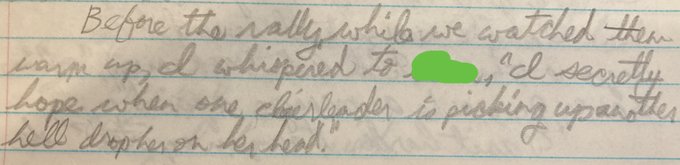 Before the rally, while we watched them
warm up, I whispered to , "I secretly
hope when one cheirleader is picking up another
he'll drop her on her head."